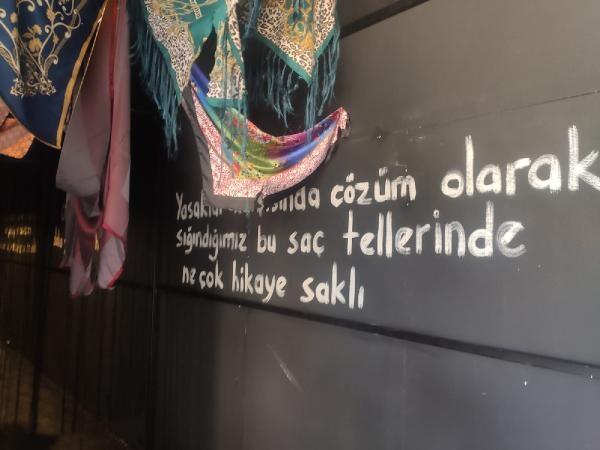 çözüm olarak
sığındığımız bu saç tellerinde
ne çok hikaye saklı